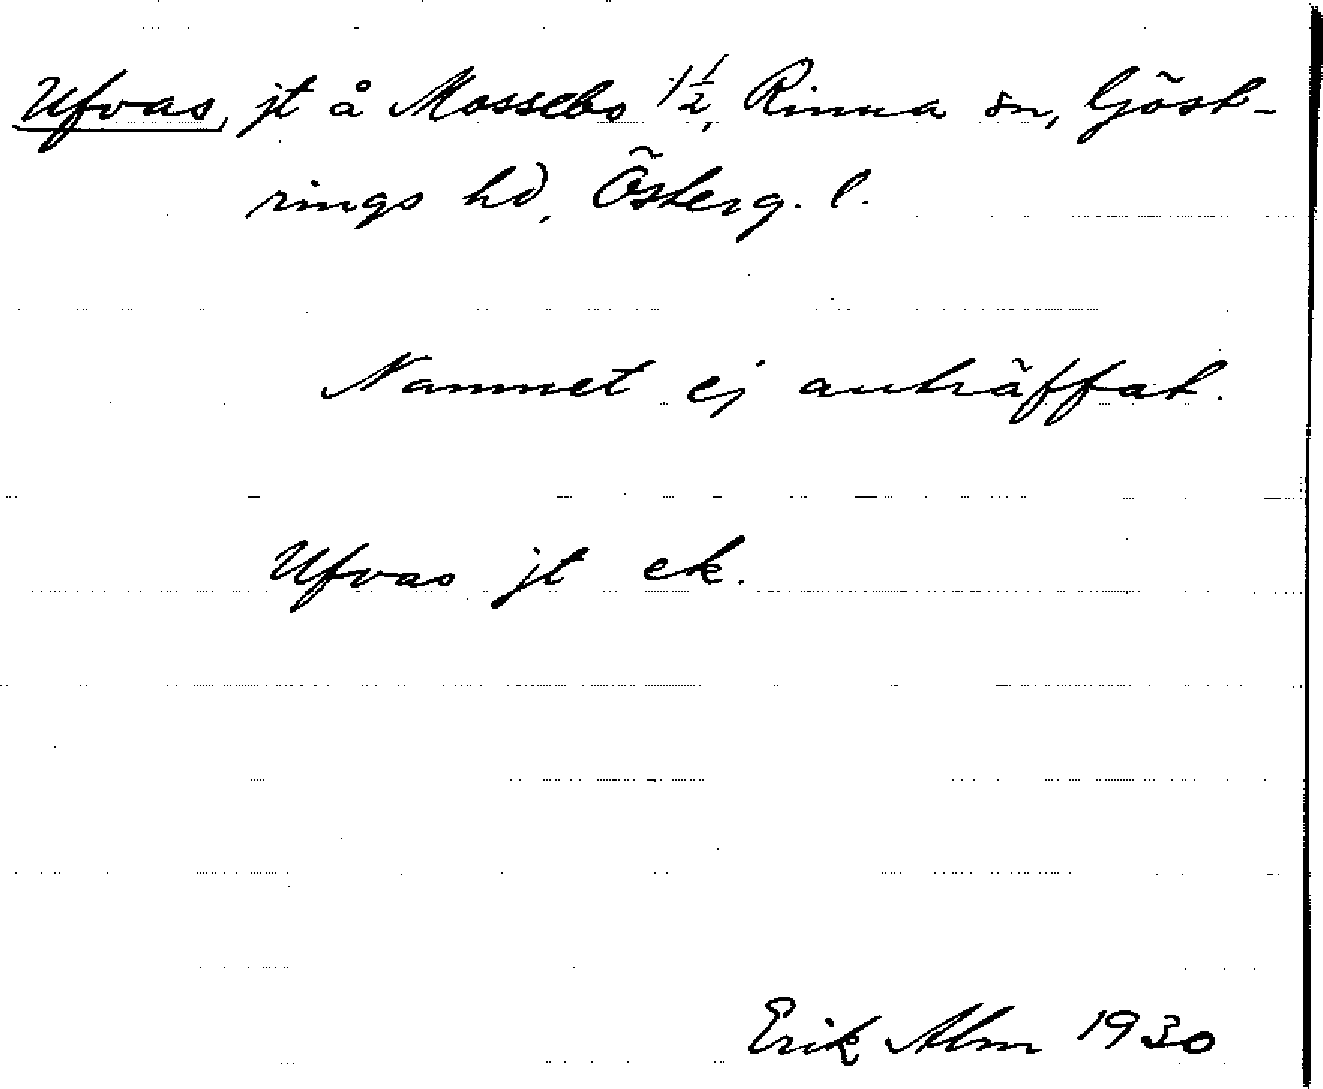 Ufvas, jt å Mossebo 1 1/2, Rinna sn, Göst-
rings hd, Österg. l.
Namnet ej anträffat.
Ufvas jt ek.
Erik Alm 1930